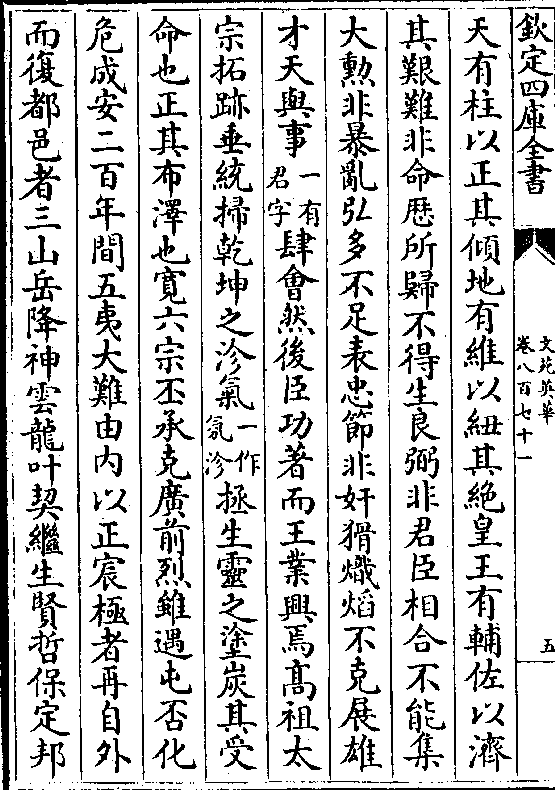 欽定四庫全書
文苑英華
卷八百七十一
五
天有柱以正其傾地有維以紐其絶皇王有輔佐以濟
其艱難非命歴所歸不得生良弼非君臣相合不能集
大勲非暴亂弘多不足表忠節非奸猾熾熖不克展雄
才天與事一有君字肆會然後臣功著而王業興焉髙祖太
宗拓跡垂統掃乾坤之沴氣一作氛沴拯生靈之塗炭其受
命也正其布澤也寛六宗丕承克廣前烈雖遇屯否化
危成安二百年間五夷大難由内以正宸極者再自外
而復都邑者三山岳降神雲龍叶契繼生賢哲保定邦